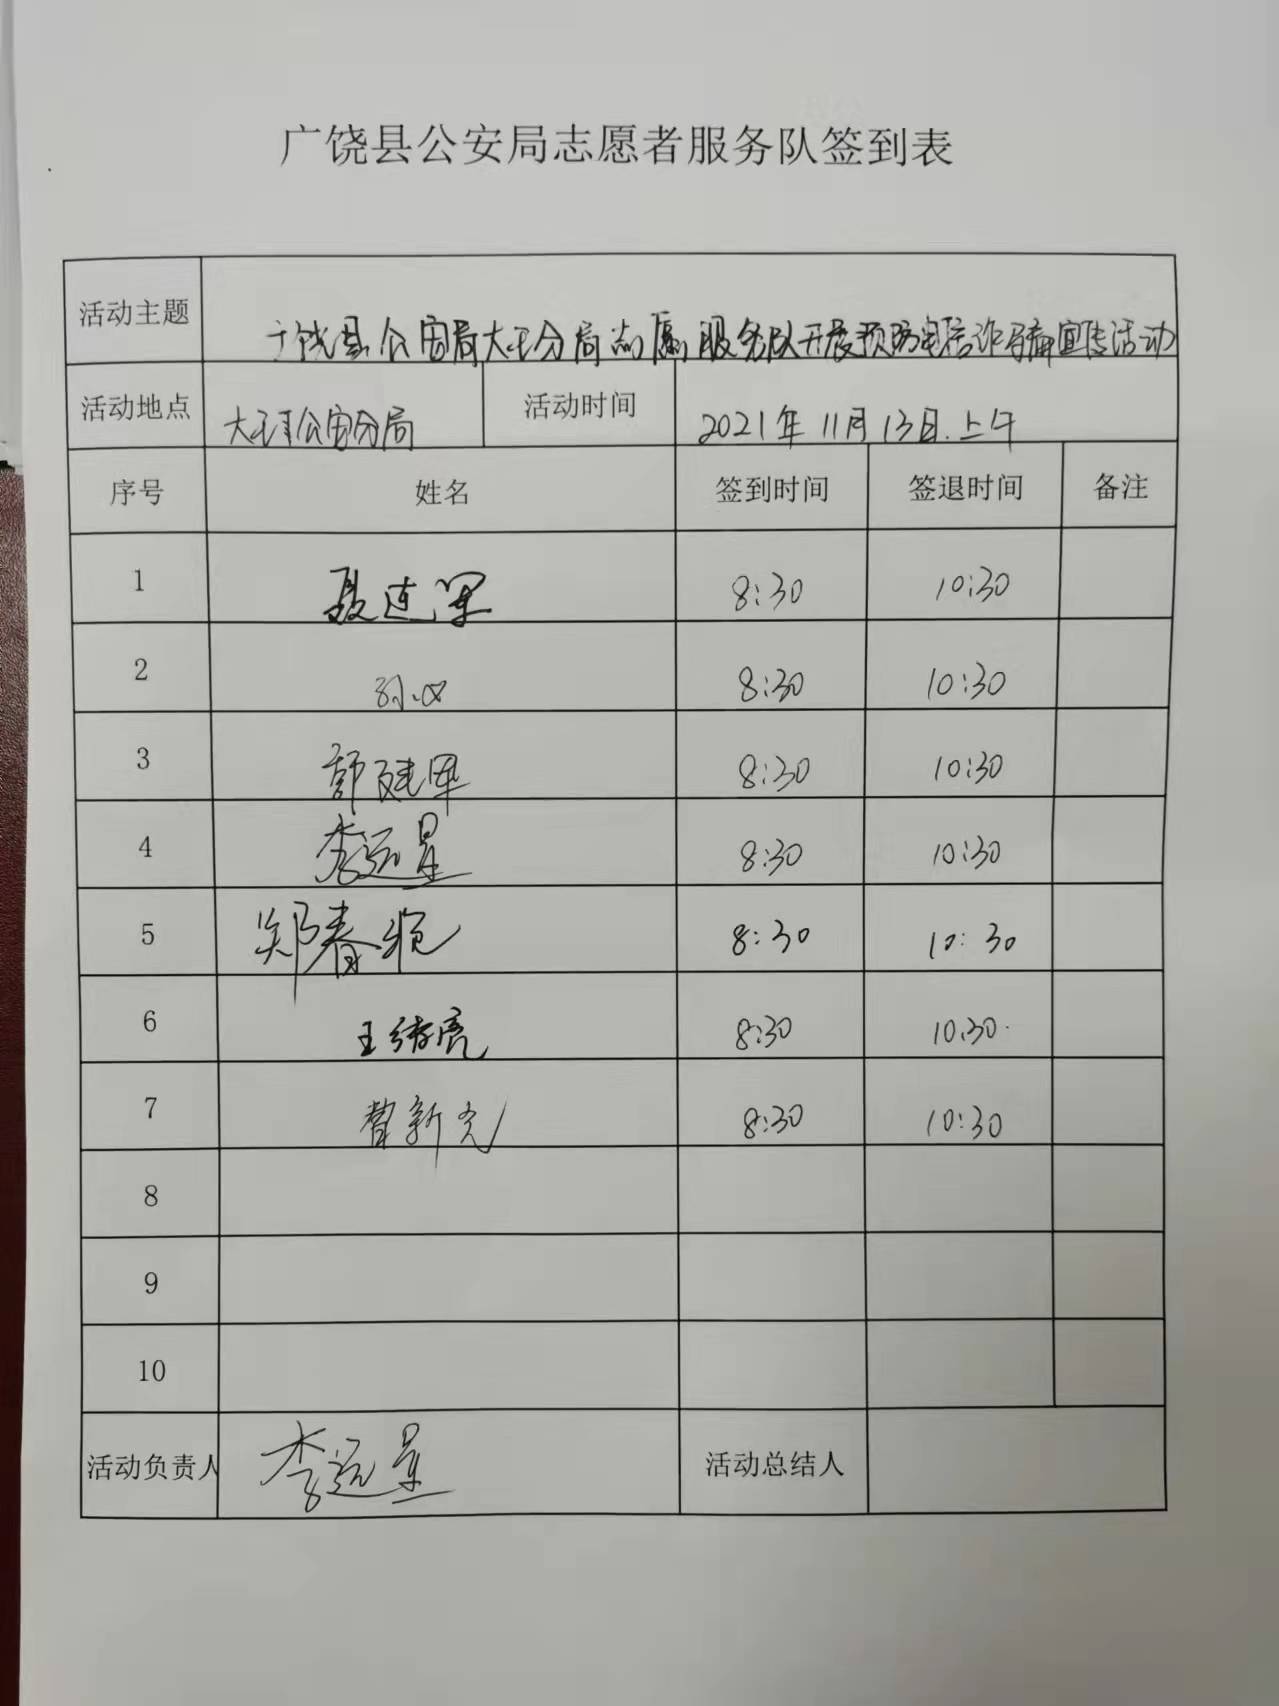 广饶县公安局志愿者服务队签到表
活动主题 广饶县公安局大王分局志愿服务队开展预防电信诈骗宣传活动
活动地点 大王公安分局 活动时间 2021年11月13日.上午
序号 姓名 签到时间 签退时间 备注
1 聂连军 8:30 10:30
2 8:30 10:30
3 建军 8:30 10:30
4 李远星 8:30 10:30
5 郑春 8:30 10:30
6 王 亮 8:30 10:30
7 曹新 8:30 10:30
8
9
10
活动负责人 李远星 活动总结人